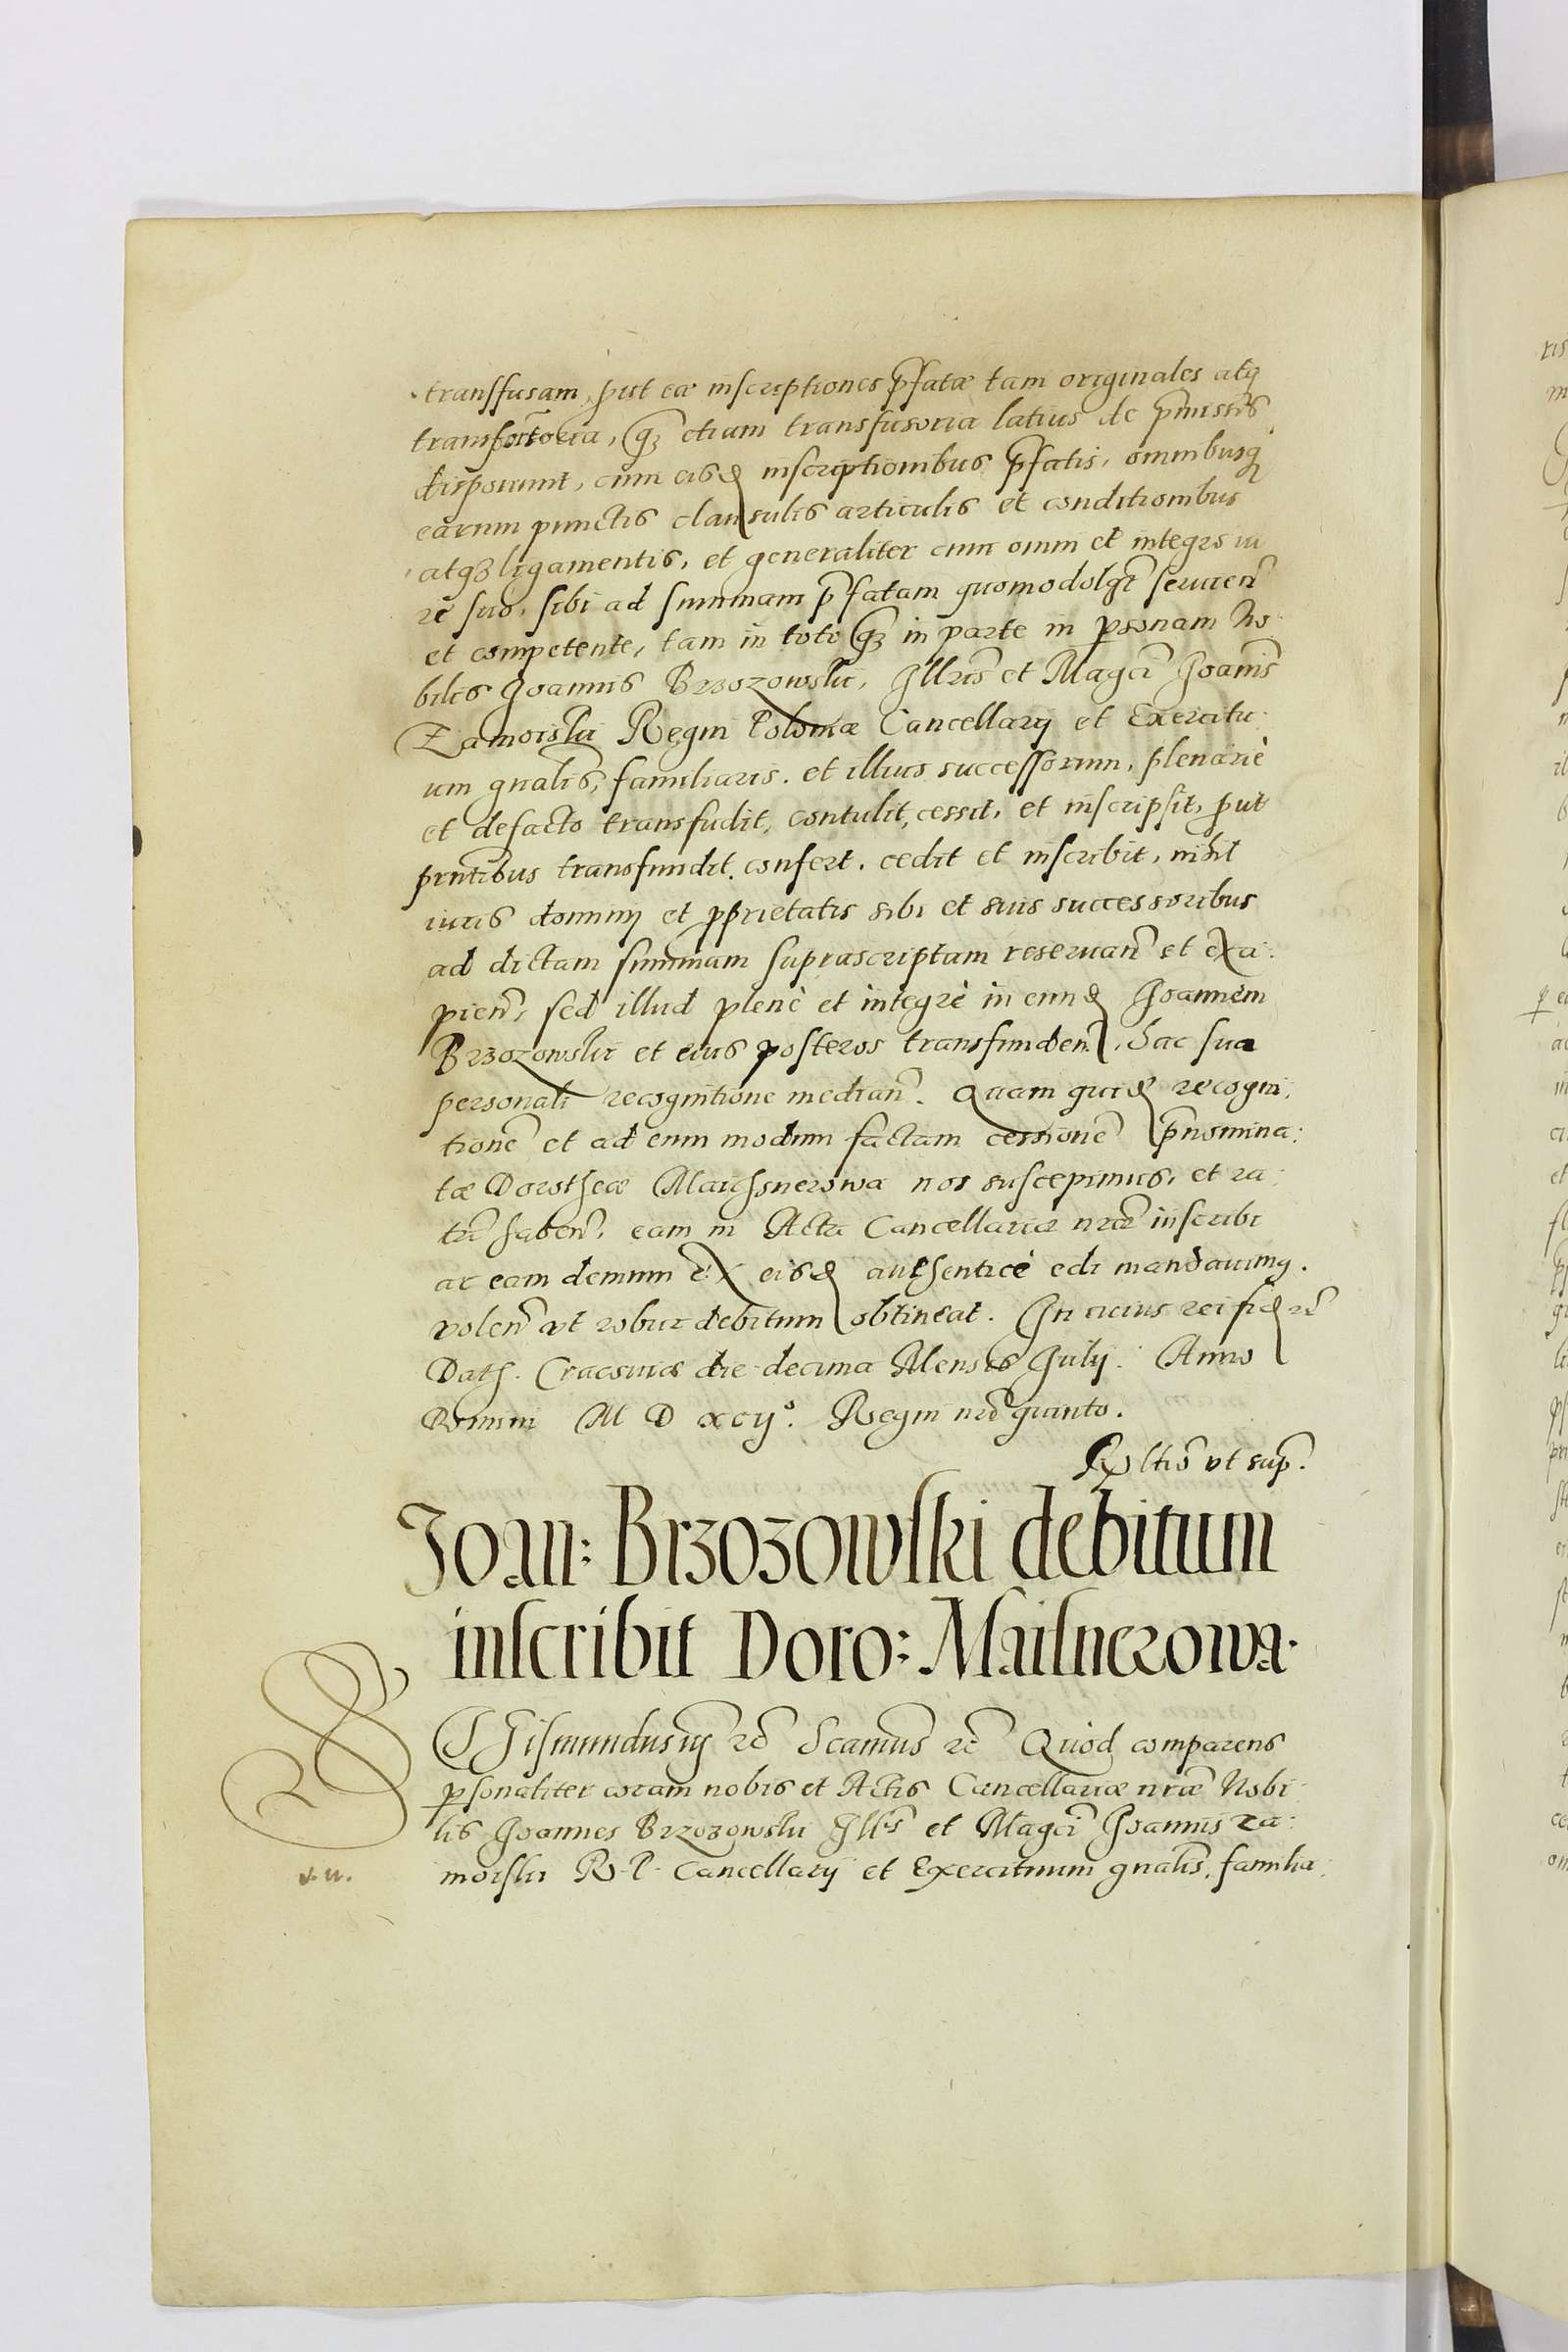 transsfusam, put eæ inscriptiones p̃fatæ tam originales atq
transfusoria, q̃ȝ etiam transfusoria latius de p̃missis
disponunt, cum eisd inscriptionibus p̃fatis, omnibusq
earum punctis clausulis articulis et conditionibus
atqȝ ligamentis, et generaliter cum omni et integro iu
re suo, sibi ad summam p̃fatam quomodolqt̃ seruien̄
et competente, tam in toto q̃ȝ in parte in psonam No
bilis Joannis Brzozowski, Illris̃ et Magci̅ Joanis̃
Zamoiski Regni Poloniæ Cancellarij et Exercitu
um gnalis̃, familiaris. et illius successorum, plenarie
et defacto transfudit, contulit, cessit, et inscripsit, put
pntibus transfundit. confert. cedit et inscribit, nihil
iuris dominij et pprietatis sibi et suis successoribus
ad dictam summam suprascriptam reseruan̄ et exci:
pien̄, sed illud plenè et integrè in eund Joannem
Brzozowski et eius posteros transfunden̄. hac sua
personali recognitione median̄. Quam quid recogni:
tione̅ et ad eum modum factam cessione̅ p̃nomina:
tæ Dorotheæ Maichsnerowa nos suscepimus, et ra
tu̅ haben̄. eam in Acta Cancellariæ nr̃æ inscribi
ac eam demum ex eisd authenticè edi mandauimꝰ.
volen̄ vt robur debitum obtineat. In cuius rei fid rc̃
Dath. Cracouiæ die decima Mensis Julij. Anno
Domini M D xcij°. Regni nr̃i quinto.
Rltio̅ vt sup̃.
Joan: Brzozowski debitum
inscribit Doro: Maisnerowa.
SIgismundus iij rc̃ Scamus̃ rc̃ Quod comparens
psonaliter coram nobis et Actis Cancellariæ nr̃æ Nobi
lis Joannes Brzozowski Ill̃is et Magci̅ Joannis Za:
moiski R. P. Cancellarij et Exercituum gnalis̃. familia: